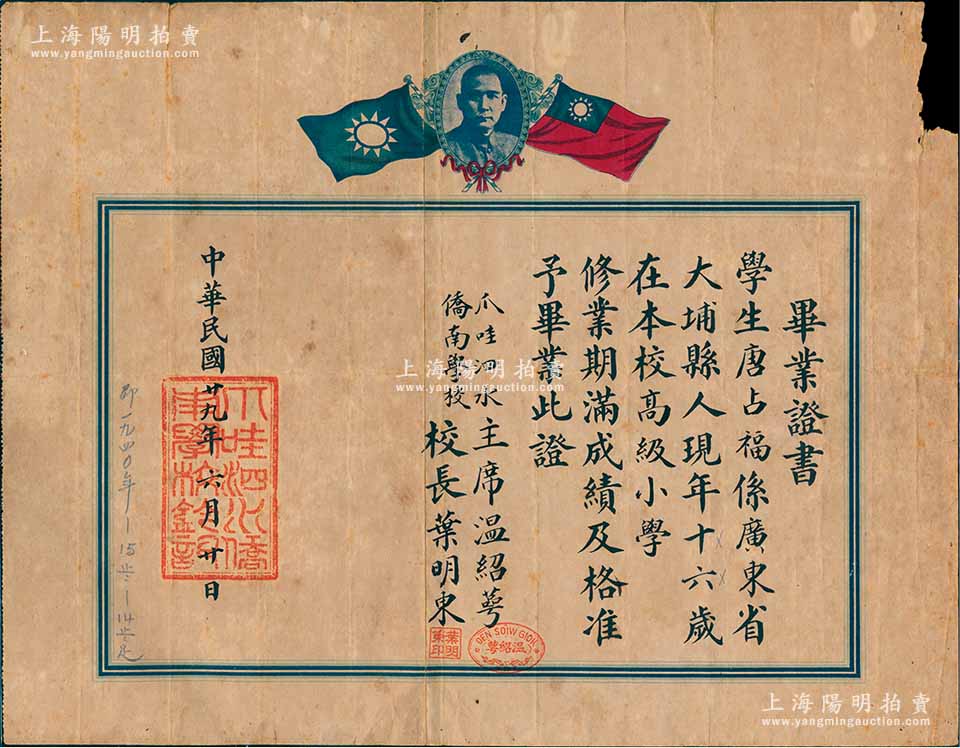 上海陽明拍賣
www.yangmingauction.com
畢業證書
學生唐占福係廣東省
大埔縣人現年十六歲
在本校高級小學
修業期滿成績及格准
予畢業此證
爪哇泗水
僑南學校
主席温紹萼
校長葉明東
OEN SOIW GIOK
温紹萼
葉明
東印
中華民國廿九年六月廿日
即一九四〇年
上海陽明拍賣
www.yangmingauction.com
上海陽明拍賣
www.yangmingauction.com